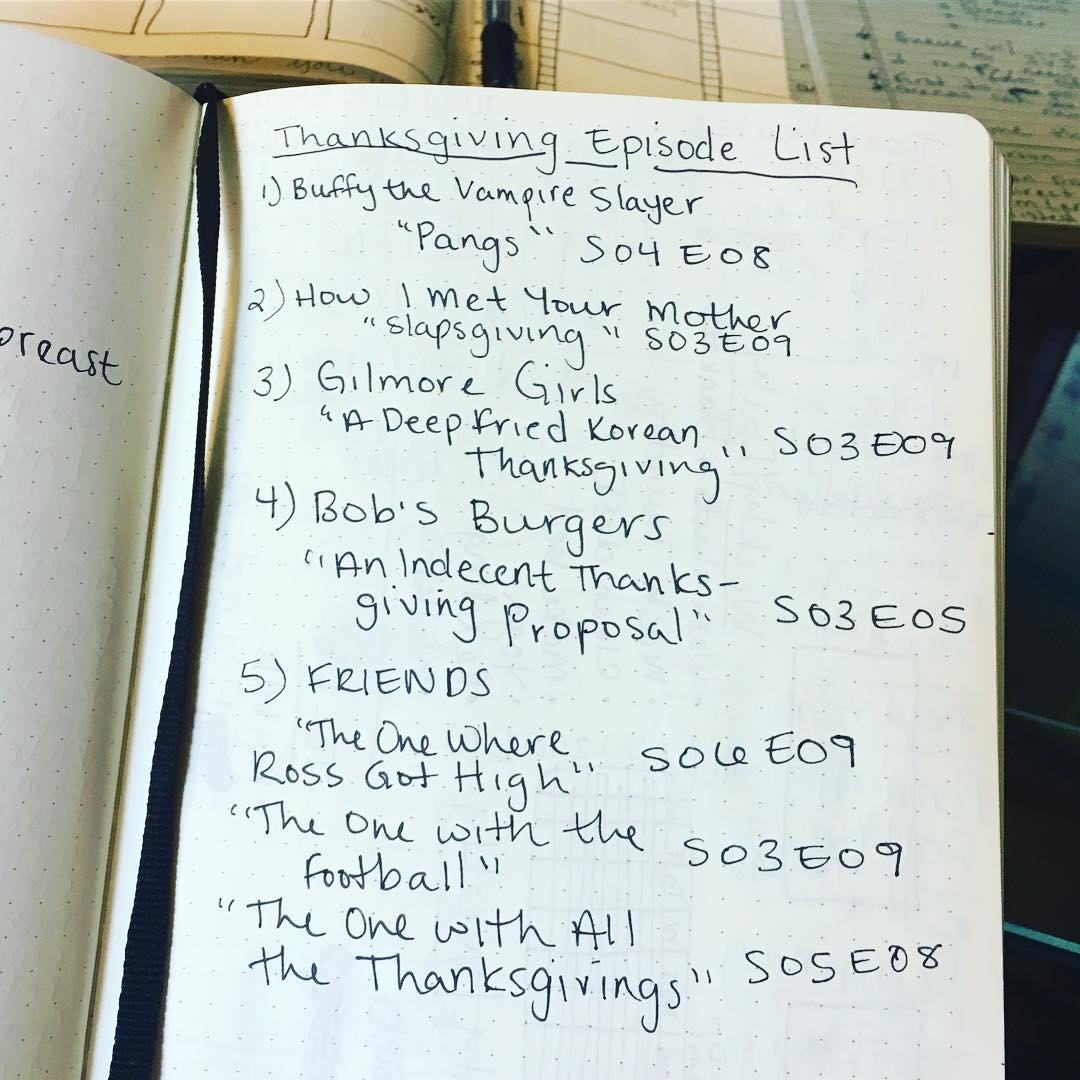 Thanksgiving Episode List
1) Buffy the Vampire Slayer
"Pangs" S04 E08
2) How I Met Your Mother
"Slapsgiving" S03E09
3) Gilmore Girls
"A Deep Fried Korean
Thanksgiving" S03 E09
4) Bob's Burgers
"An Indecent Thanks-
giving Proposal" S03 E05
5) FRIENDS
"The One Where
Ross Got High" S06 E09
"The One with the
Football" S03E09
"The One with All
the Thanksgivings" S05E08